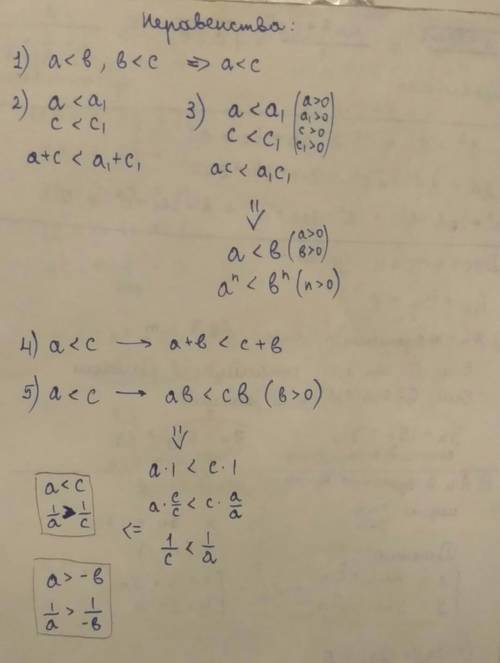 Неравенства:
1) a<в, в<c => a<c
2) a<a₁
c<c₁
a+c < a₁+c₁
3) a<a₁ (a>0
c<c₁ a₁>0
c>0
c₁>0)
ac<a₁c₁
⇓
a<в (a>0
в>0)
aⁿ < вⁿ (n>0)
4) a<c → a+в < c+в
5) a<c → aв < cв (в>0)
⇓
a·1 < c·1
a·c/c < c·a/a
1/c < 1/a
<=
a<c
1/a > 1/c
a>-в
1/a > 1/-в